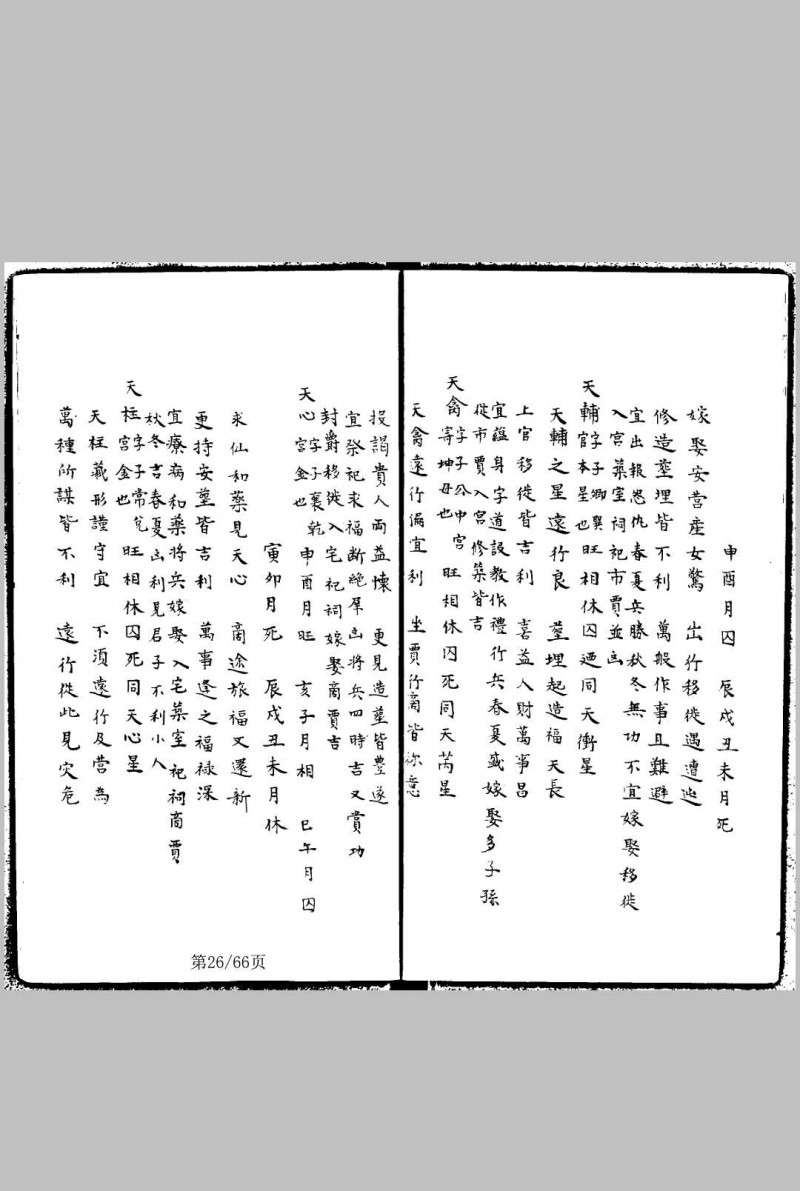 申酉月囚　辰戌丑未月死
嫁娶安營產女驚　出行移徙遇遭迍
修造塟埋皆不利　萬般作事且難避
宜出報恩仇春夏兵勝秋冬無功不宜嫁娶移徙
入宮築室祠祀市賈並凶
天輔字子卿巽宮本星也旺相休囚廼同天衝星
天輔之星遠行良　塟埋起造福天長
上官移徙皆吉利　喜益人財萬事昌
宜蘊身字道設教作禮行兵春夏盛嫁娶多子孫
從市賈入宮修築皆吉
天禽字子公中宮寄坤母也　旺相休囚死同天芮星
天禽遠行偏宜利　坐賈行商皆祢意
投謁貴人兩益懷　更見造塟皆豊遂
宜祭祀求福斷絕羣凶將兵四時吉又賞功
封爵移徙入宅祀祠嫁娶商賈吉
天心字子襄乾宮金也　申酉月旺　亥子月相　巳午月囚
寅卯月死　辰戌丑未月休
求仙和藥見天心　商途旅福又還新
更持安塟皆吉利　萬事逢之福禄深
宜療病和藥將兵嫁娶入宅築室祀祠商賈
秋冬吉春夏凶利見君子不利小人
天柱字子常兌宮金也　旺相休囚死同天心星
天柱藏形謹守宜　不須遠行及營為
萬種所謀皆不利　遠行從此見灾危
第26/66页